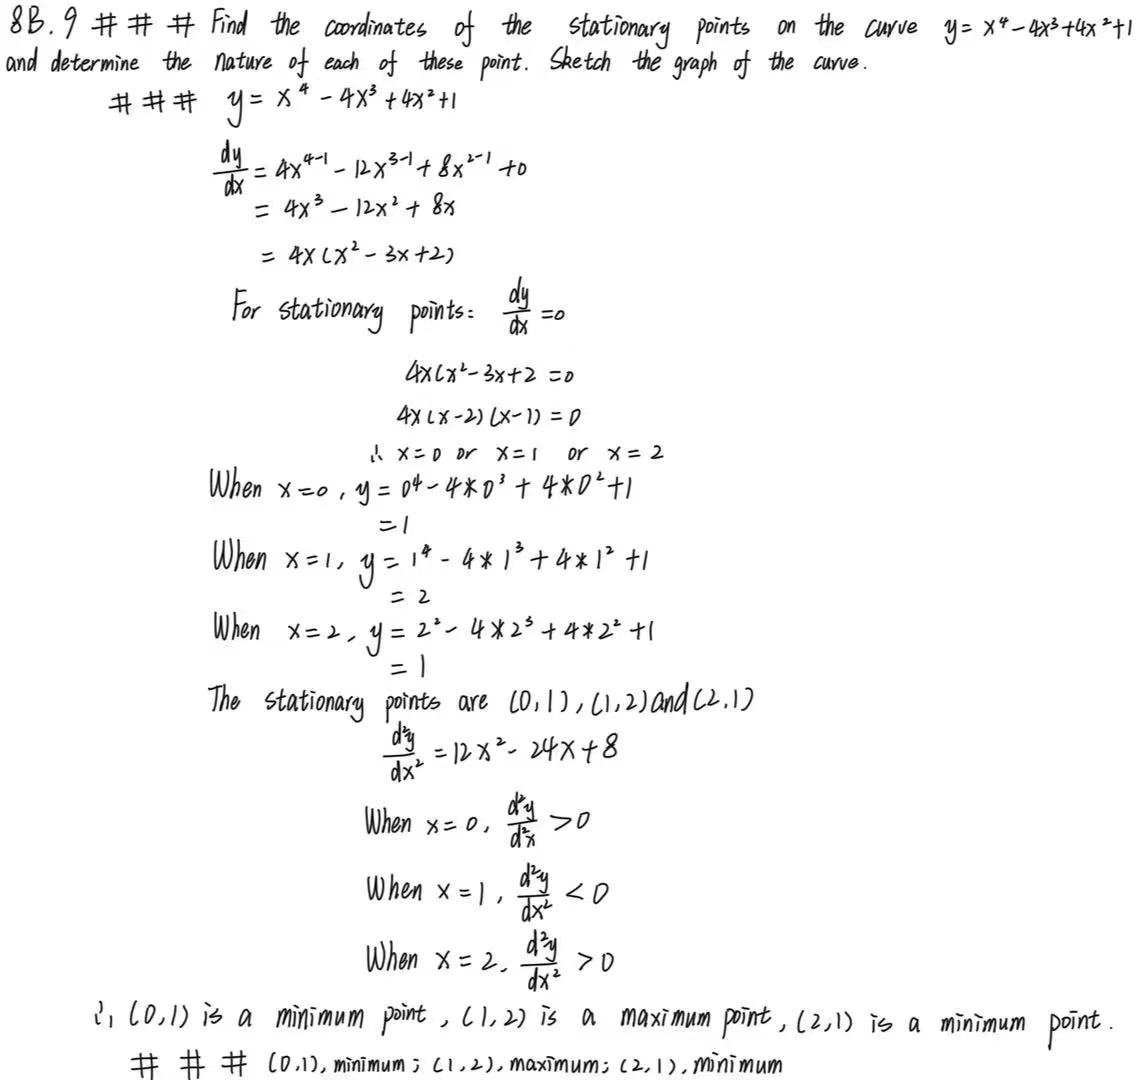 8B.9 # # # Find the coordinates of the stationary points on the curve y = x⁴ - 4x³ + 4x² + 1
and determine the nature of each of these point. Sketch the graph of the curve.
# # # y = x⁴ - 4x³ + 4x² + 1
dy/dx = 4x⁴⁻¹ - 12x³⁻¹ + 8x²⁻¹ + 0
= 4x³ - 12x² + 8x
= 4x(x² - 3x + 2)
For stationary points: dy/dx = 0
4x(x² - 3x + 2 = 0
4x(x - 2)(x - 1) = 0
∴ x = 0 or x = 1 or x = 2
When x = 0, y = 0⁴ - 4*0³ + 4*0² + 1
= 1
When x = 1, y = 1⁴ - 4*1³ + 4*1² + 1
= 2
When x = 2, y = 2² - 4*2³ + 4*2² + 1
= 1
The stationary points are (0,1), (1,2) and (2,1)
d²y/dx² = 12x² - 24x + 8
When x = 0, d²y/d²x > 0
When x = 1, d²y/dx² < 0
When x = 2, d²y/dx² > 0
∴ (0,1) is a minimum point, (1,2) is a maximum point, (2,1) is a minimum point.
# # # (0,1), minimum; (1,2), maximum; (2,1), minimum